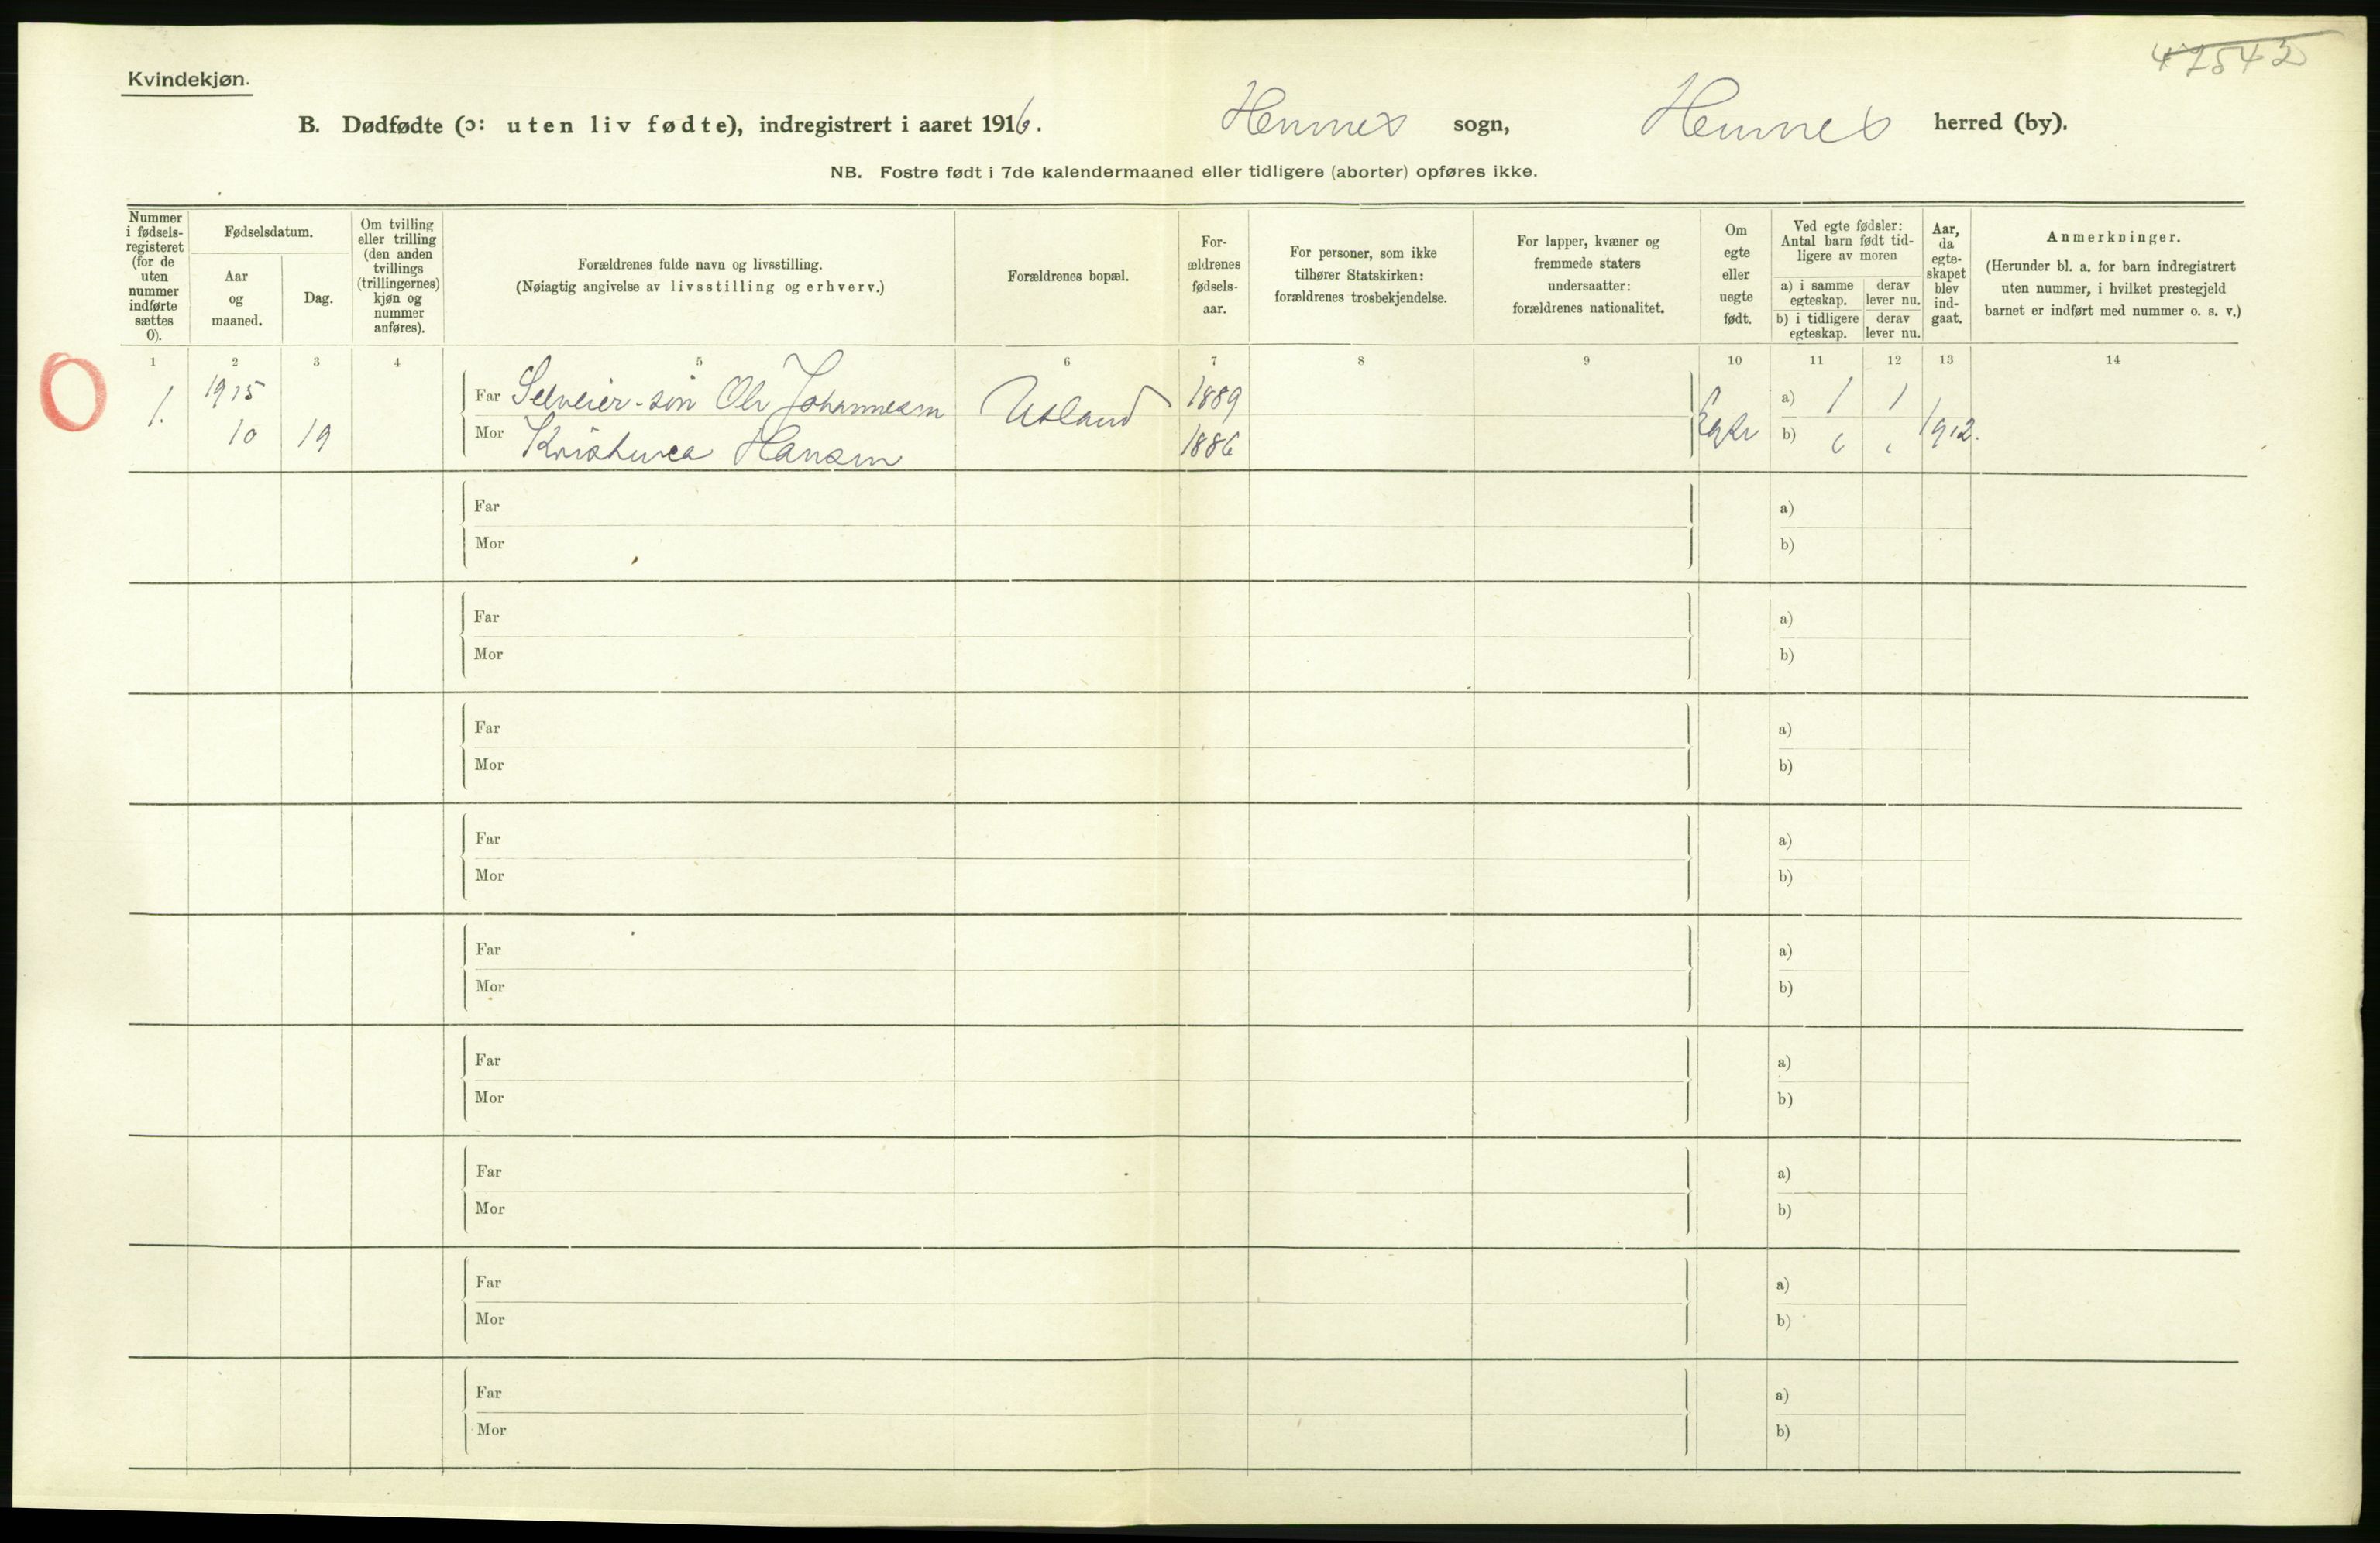 47542
Kvindekjøn.
B. Dødfødte (ɔ: uten liv fødte), indregistrert i aaret 1916. Hemnes sogn, Hemnes herred (by).
NB. Fostre født i 7de kalendermaaned eller tidligere (aborter) opføres ikke.
Nummer i fødsels-registeret (for de uten nummer indførte sættes 0).
Fødselsdatum.
Aar og maaned.
Dag.
Om tvilling eller trilling (den anden tvillings (trillingernes) kjøn og nummer anføres).
Forældrenes fulde navn og livsstilling.
(Nøiagtig angivelse av livsstilling og erhverv.)
Forældrenes bopæl.
For-ældrenes fødsels-aar.
For personer, som ikke tilhører Statskirken: forældrenes trosbekjendelse.
For lapper, kvæner og fremmede staters undersaatter: forældrenes nationalitet.
Om egte eller uegte født.
Ved egte fødsler: Antal barn født tid-ligere av moren
a) i samme egteskap.
derav lever nu.
b) i tidligere egteskap.
derav lever nu.
Aar, da egte-skapet blev ind-gaat.
Anmerkninger.
(Herunder bl. a. for barn indregistrert uten nummer, i hvilket prestegjeld barnet er indført med nummer o. s. v.)
1 2 3 4 5 6 7 8 9 10 11 12 13 14
1. 1915 Far Selveier-søn Ole Johannesen Utland 1889 Egte a) 1 1 1912.
10 19 Mor Kristine Hansen 1886 b) " "
Far a)
Mor b)
Far a)
Mor b)
Far a)
Mor b)
Far a)
Mor b)
Far a)
Mor b)
Far a)
Mor b)
Far a)
Mor b)
Far a)
Mor b)
Far a)
Mor b)